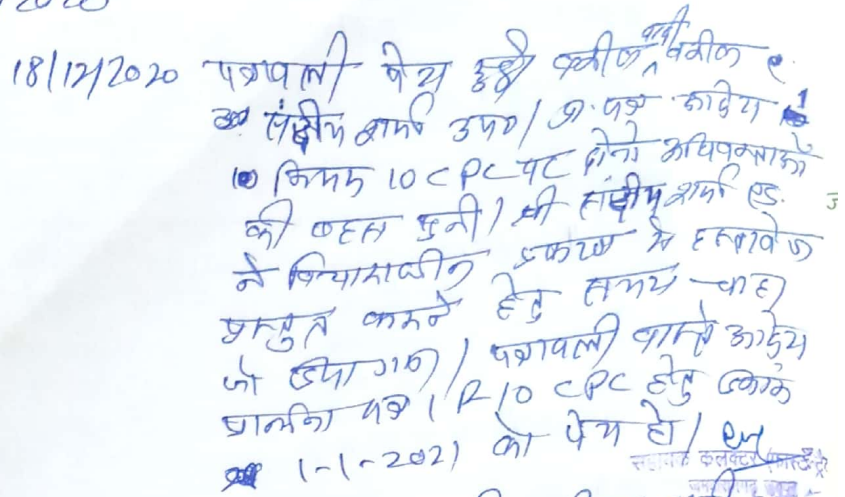 2020
18/12/2020 पत्रावली पेश हुई वकील वादी वकील ए.
संदीप शर्मा उप० / प्रा. पत्र आदेश 1
नियम 10 CPC पर दोनो अधिवक्ताओ
की बहस सुनी / श्री संदीप शर्मा एड.
ने विचाराधीन प्रकरण मे दस्तावेज
प्रस्तुत करने हेतु समय चाहा
जो दिया गया / पत्रावली वास्ते आदेश
प्रार्थना पत्र 1 R 10 CPC हेतु दिनांक
1-1-2021 को पेश हो /
सहायक कलक्टर